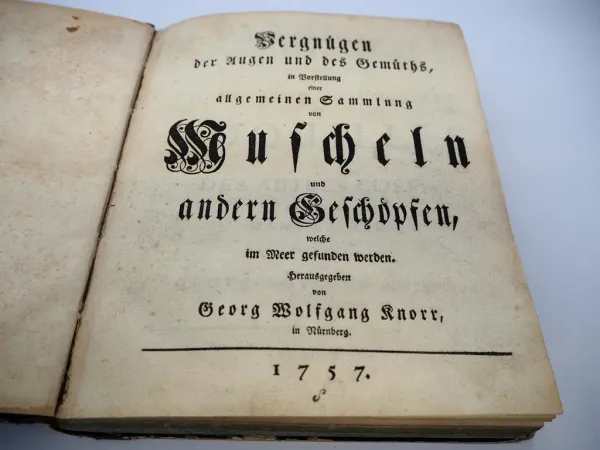 Vergnügen
der Augen und des Gemüths,
in Vorstellung
einer
allgemeinen Sammlung
von
Muscheln
und
andern Geschöpfen,
welche
im Meer gefunden werden.
Herausgegeben
von
Georg Wolfgang Knorr,
in Nürnberg.
1757.